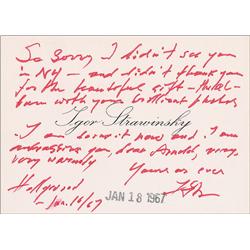 So sorry I didn't see you
in NY – and didn't thank you
for the beautiful gift –
with your brilliant photos
Igor Strawinsky
I am doing it now and I am
embracing you, dear Arnold, very,
very warmly
Yours as ever
Hollywood
Jan. 16/67
JAN 18 1967